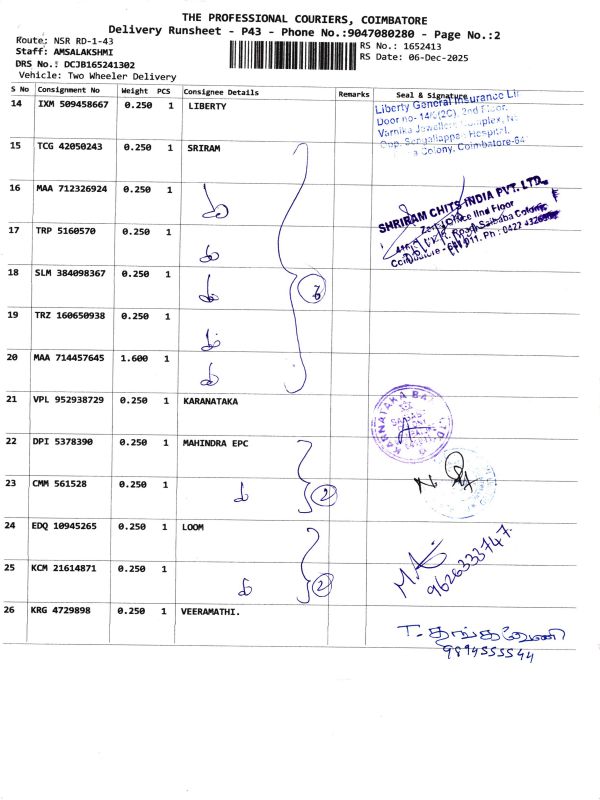 THE PROFESSIONAL COURIERS, COIMBATORE
Delivery Runsheet - P43 - Phone No.:9047080280 - Page No.:2
Route: NSR RD-1-43
Staff: AMSALAKSHMI
DRS No.: DCJB165241302
Vehicle: Two Wheeler Delivery
RS No.: 1652413
RS Date: 06-Dec-2025
S No Consignment No Weight PCS Consignee Details Remarks Seal & Signature
14 IXM 509458667 0.250 1 LIBERTY
Liberty General Insurance Li
Door no- 14/ (2C), 2nd Floor,
Varnika Jewellers Complex, N
Opp. Sengaliappa Hospital,
a Colony, Coimbatore-64
15 TCG 42050243 0.250 1 SRIRAM
16 MAA 712326924 0.250 1
SHRIRAM CHITS INDIA PVT. LTD.
Office IInd Floor
Road, Saibaba Colony
Coimbatore - 641 011. Ph : 0422
17 TRP 5160570 0.250 1
18 SLM 384098367 0.250 1
19 TRZ 160650938 0.250 1
20 MAA 714457645 1.600 1
21 VPL 952938729 0.250 1 KARANATAKA
KARNATAKA BA LTD
22 DPI 5378390 0.250 1 MAHINDRA EPC
23 CMM 561528 0.250 1
2
24 EDQ 10945265 0.250 1 LOOM
25 KCM 21614871 0.250 1
2
9626333747
26 KRG 4729898 0.250 1 VEERAMATHI.
T. தங்கவேணி
9894555544